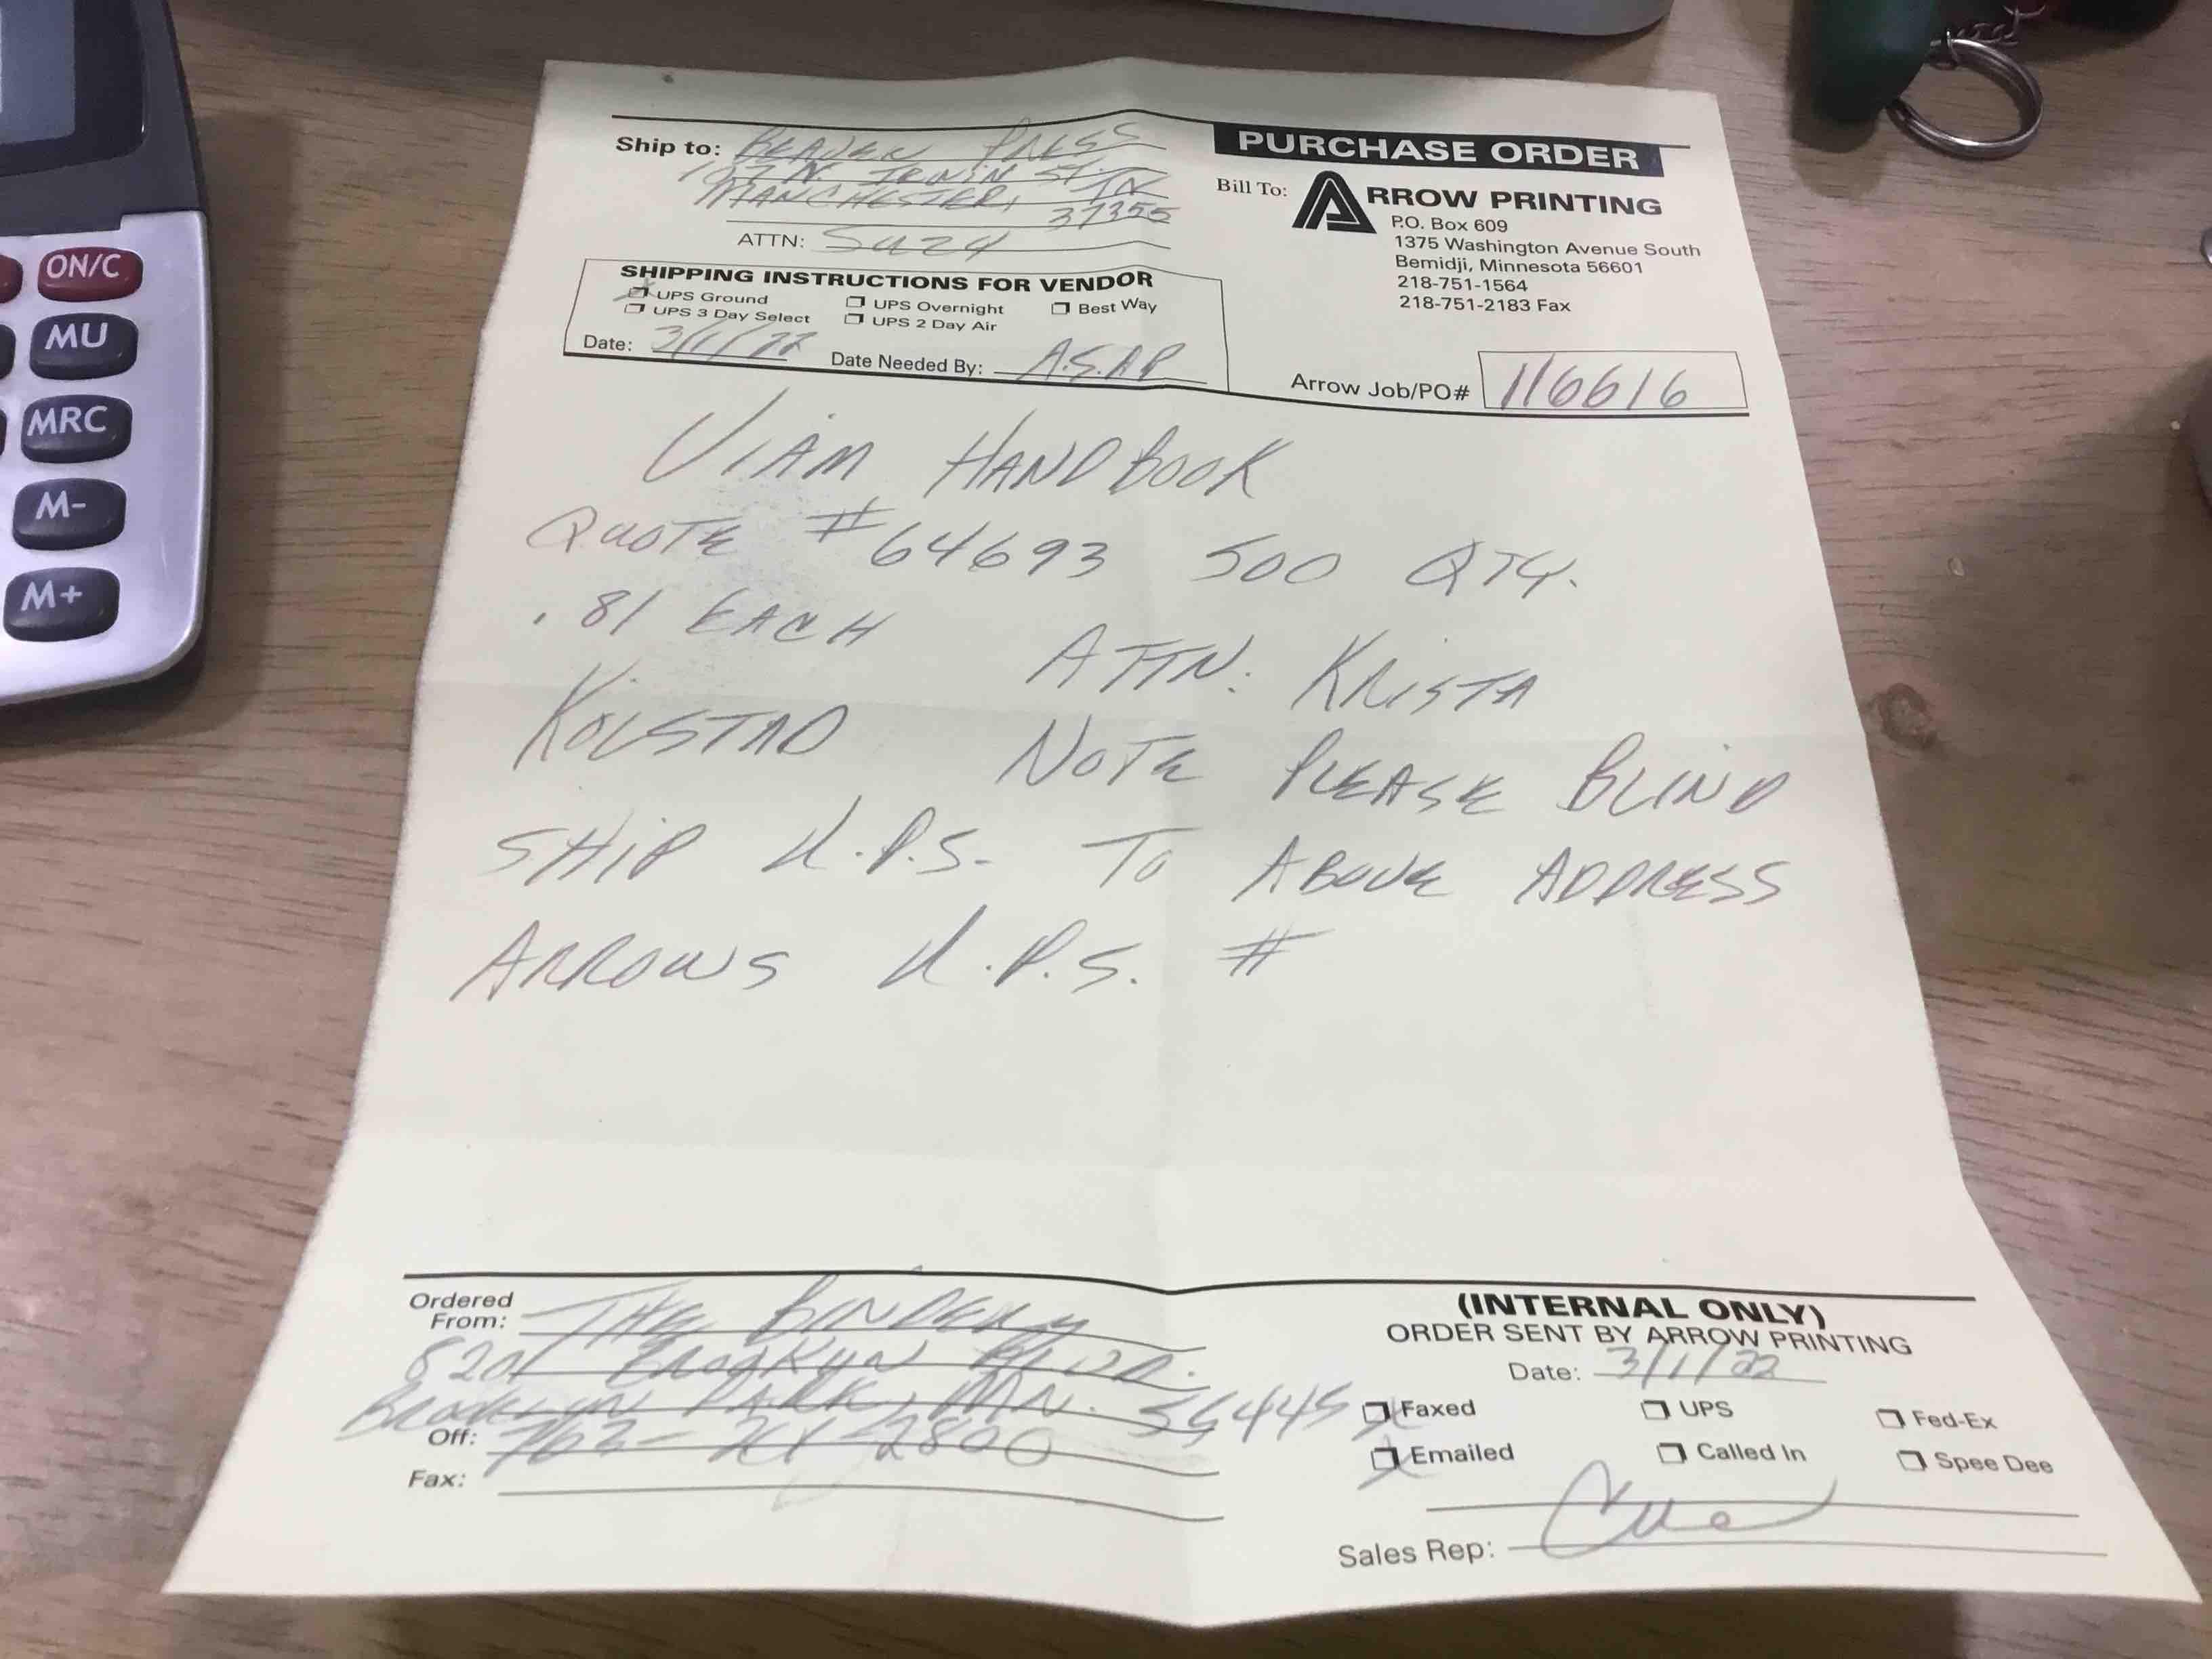 ON/C
MU
MRC
M-
M+
PURCHASE ORDER
Ship to: BEAVER PRESS
107 N. IRWIN ST.
MANCHESTER, TN
37355
ATTN: SUZY
Bill To: ARROW PRINTING
P.O. Box 609
1375 Washington Avenue South
Bemidji, Minnesota 56601
218-751-1564
218-751-2183 Fax
SHIPPING INSTRUCTIONS FOR VENDOR
UPS Ground UPS Overnight Best Way
UPS 3 Day Select UPS 2 Day Air
Date: 3/1/22 Date Needed By: A.S.A.P
Arrow Job/PO# 116616
VIAM HANDBOOK
QUOTE #64693 500 QTY.
.81 EACH ATTN: KRISTA
KOLSTAD NOTE PLEASE BLIND
SHIP U.P.S. TO ABOVE ADDRESS
ARROWS U.P.S. #
Ordered From: THE BINDERY
8201 BROOKLYN BLVD.
BROOKLYN PARK, MN. 55445
Off: 763- 2800
Fax:
(INTERNAL ONLY)
ORDER SENT BY ARROW PRINTING
Date: 3/1/22
Faxed UPS Fed-Ex
Emailed Called In Spee Dee
Sales Rep: